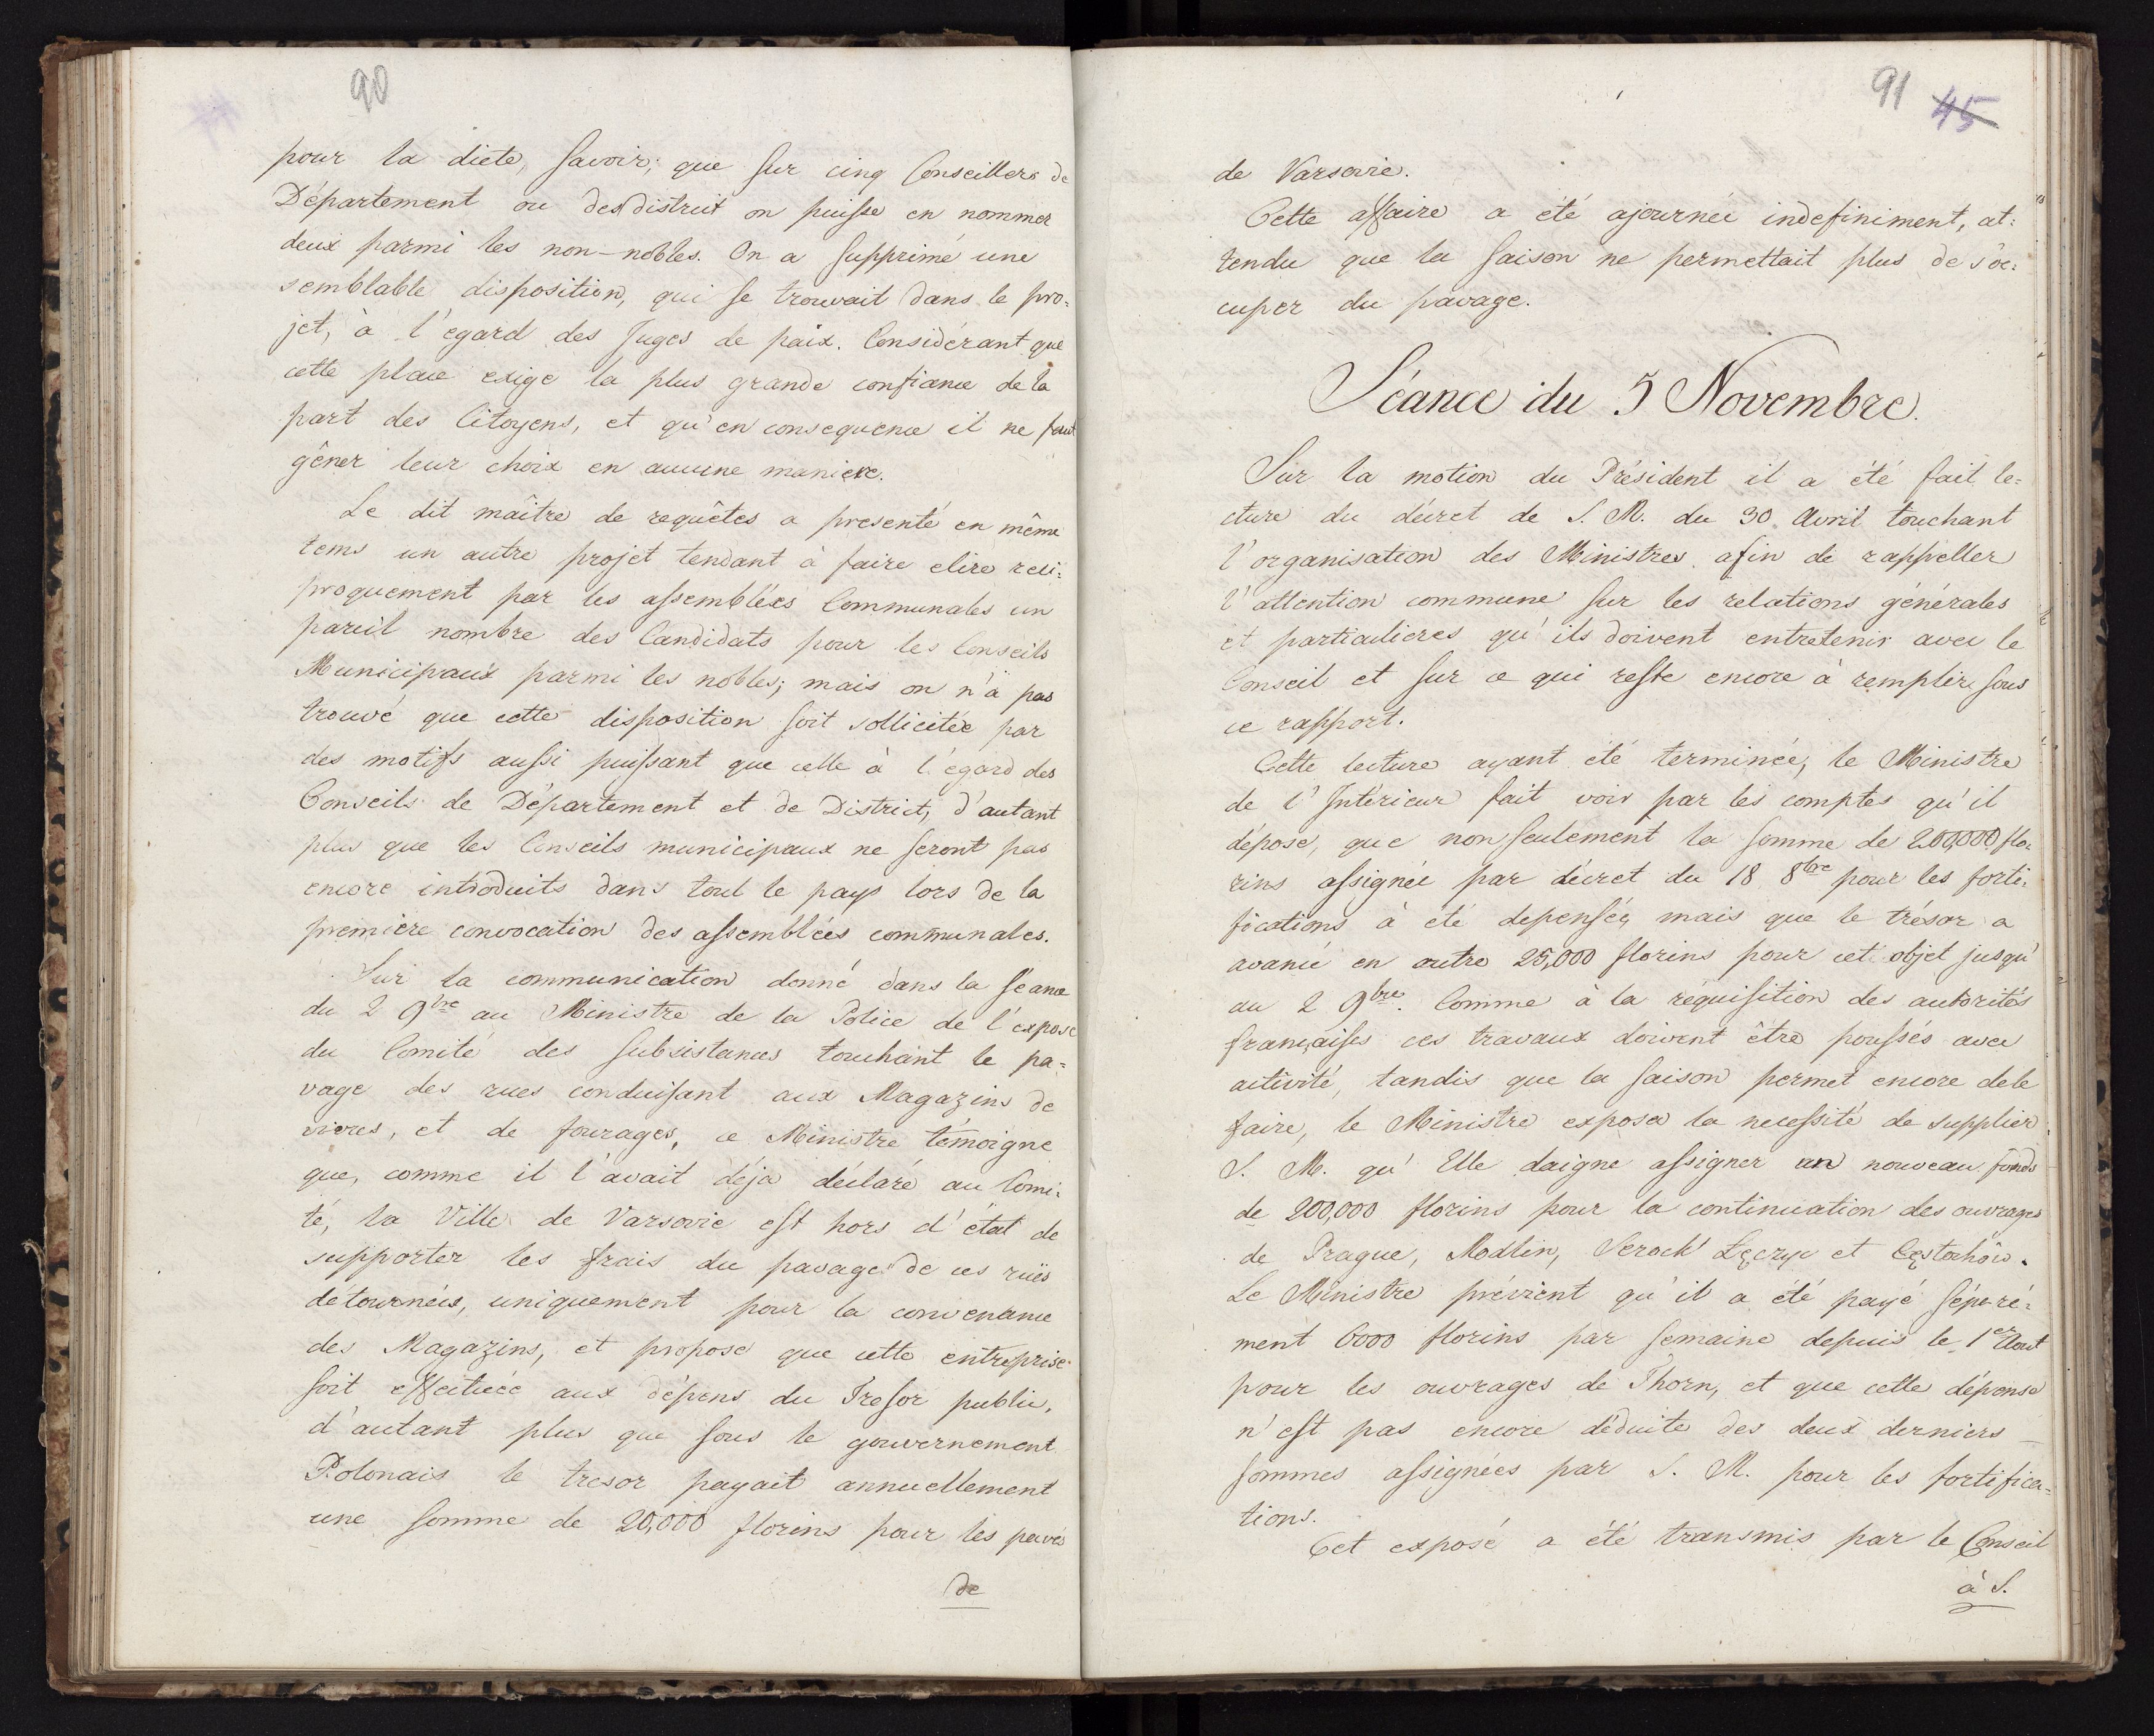 90
pour la diete, savoir; que sur cinq Conseillers de
Département ou des district on puisse en nommer
deux parmi les non-nobles. On a supprimé une
semblable disposition, qui se trouvait dans le pro=
jet, à l'egard des Juges de paix. Considérant que
cette place exige la plus grande confiance de la
part des Citoyens, et qu'en consequence il ne faut
gêner leur choix en aucune maniere.
Le dit maître de requêtes a presenté en même
tems un autre projet tendant à faire elire reci=
proquement par les assemblées Communales un
pareil nombre des Candidats pour les Conseils
Municipaux parmi les nobles; mais on n'a pas
trouvé que cette disposition soit sollicitée par
des motifs aussi puissant que celle à l'égard des
Conseils de Département et de District, d'autant
plus que les Conseils municipaux ne seront pas
encore introduits dans tout le pays lors de la
premiere convocation des assemblées communales.
Sur la communication donné dans la séance
du 2 9bre au Ministre de la Police de l'exposé
du Comité des subsistances touchant le pa=
vage des rues conduisant aux Magazins de
vivres, et de fourages, ce Ministre témoigne
que, comme il l'avait déja déclaré au Comi=
té, la Ville de Varsovie est hors d'état de
supporter les frais du pavage de ces rues
detournées, uniquement pour la convenance
des Magazins, et propose que cette entreprise
soit effectuée aux dépens du Tresor public,
d'autant plus que sous le gouvernement
Polonais le tresor payait annuellement
une somme de 20,000 florins pour les pavés
de
91 45
de Varsovie.
Cette affaire a été ajournée indefiniment, at=
tendu que la saison ne permettait plus de s'oc=
cuper du pavage.
Séance du 5 Novembre.
Sur la motion du Président il a été fait le=
cture du décret de S. M. du 30 Avril touchant
l'organisation des Ministres afin de rappeller
l'attention commune sur les relations générales
et particulieres qu'ils doivent entretenir avec le
Conseil et sur ce qui reste encore à remplir sous
ce rapport.
Cette lecture ayant été terminée, le Ministre
de l'Intérieur fait voir par les comptes qu'il
dépose, que non seulement la somme de 200,000 flo=
rins assignée par décret du 18 8bre pour les forti=
fications à été depensée, mais que le trésor a
avancé en outre 25,000 florins pour cet objet jusqu'
au 2 9bre. Comme à la réquisition des autorités
françaises ces travaux doivent être poussés avec
activité, tandis que la saison permet encore de le
faire, le Ministre exposa la necessité de supplier
S. M. qu'Elle daigne assigner un nouveau fonds
de 200,000 florins pour la continuation des ouvrages
de Prague, Modlin, Serock Łęczyc et Cęstochow.
Le Ministre prévient qu'il a été payé séparé=
ment 6000 florins par semaine depuis le 1er Aout
pour les ouvrages de Thorn, et que cette dépense
n'est pas encore déduite des deux derniers
sommes assignées par S. M. pour les fortifica=
tions.
Cet exposé a été transmis par le Conseil
à S.